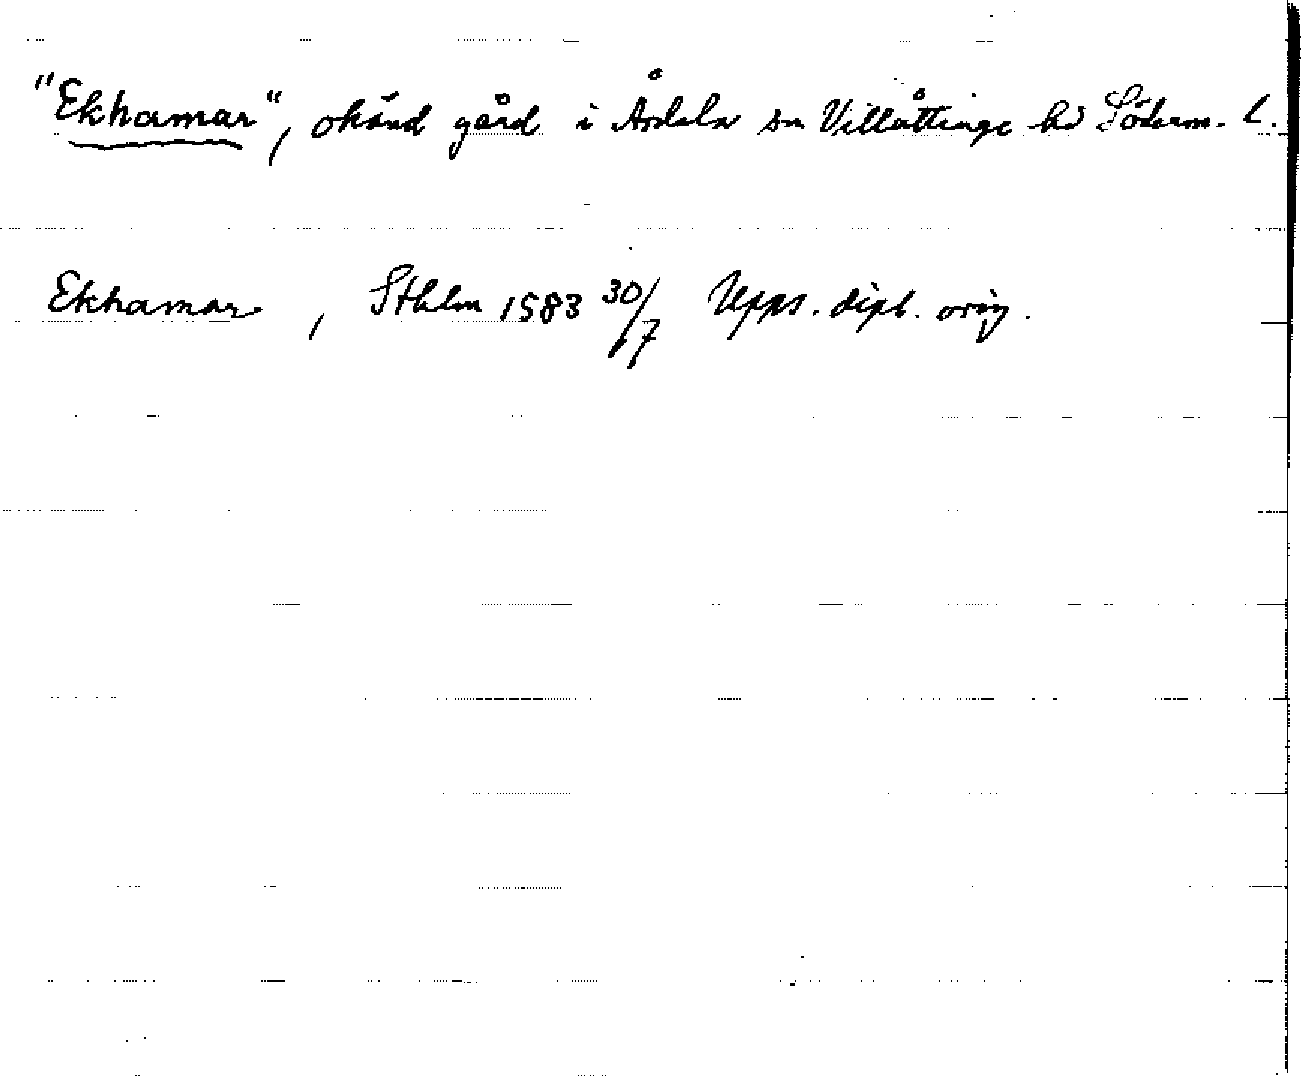 "Ekhamar", okänd gård i Årdala sn Villåttinge hd Söderm. l.
Ekhamar, Sthlm 1583 30/7 Upps. dipl. orig.